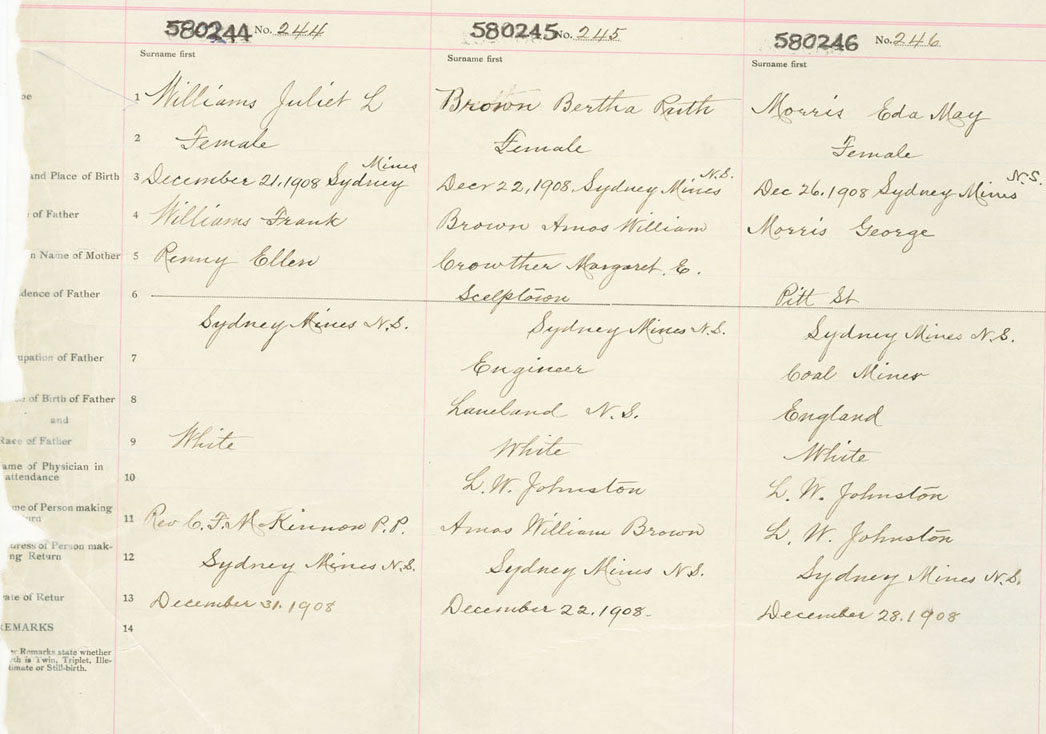 580244 No. 244 580245 No. 245 580246 No. 246
Surname first Surname first Surname first
1 Williams Juliet L Brown Bertha Ruth Morris Eda May
2 Female Female Female
and Place of Birth 3 December 21, 1908 Sydney Mines Decr 22, 1908, Sydney Mines N.S. Dec 26, 1908 Sydney Mines N.S.
of Father 4 Williams Frank Brown Amos William Morris George
n Name of Mother 5 Penny Ellen Crowther Margaret. E.
dence of Father 6 Pitt St
Sydney Mines N.S. Sydney Mines N.S. Sydney Mines N.S.
upation of Father 7 Engineer Coal Miner
of Birth of Father 8 N.S. England
and
Race of Father 9 White White White
ame of Physician in
attendance 10 L. W. Johnston L. W. Johnston
me of Person making
urn 11 Rev C. F. McKinnon P.P. Amos William Brown L. W. Johnston
dress of Person mak-
ng Return 12 Sydney Mines N.S. Sydney Mines N.S. Sydney Mines N.S.
ate of Retur 13 December 31, 1908 December 22, 1908. December 28, 1908
EMARKS 14
er Remarks state whether
rth is Twin, Triplet, Ille-
timate or Still-birth.